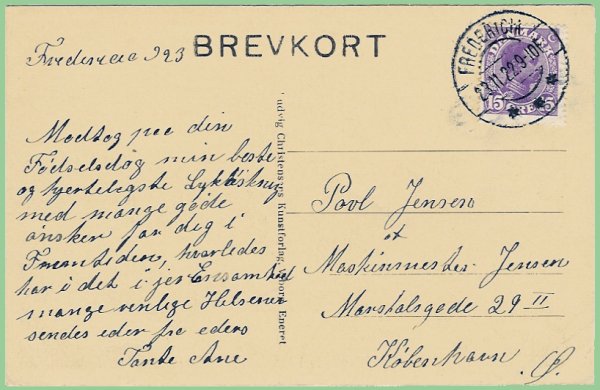 BREVKORT
FREDERICIA
23.11.22.9-10E.
DANMARK
15 ØRE 15
Fredericia 923
Modtag paa din
Fødselsdag min beste
og hjerteligste Lykønskning
med mange gode
ønsker for dig i
Fremtiden, hvorledes
har i det i jer Ensomhed
mange venlige Hilsener
sendes eder fra eders
Tante Ane
Ludvig Christensens Kunstforlag, Eneret
Povl Jensen
Maskinmester Jensen
Marstalsgade 29 II
København Ø.